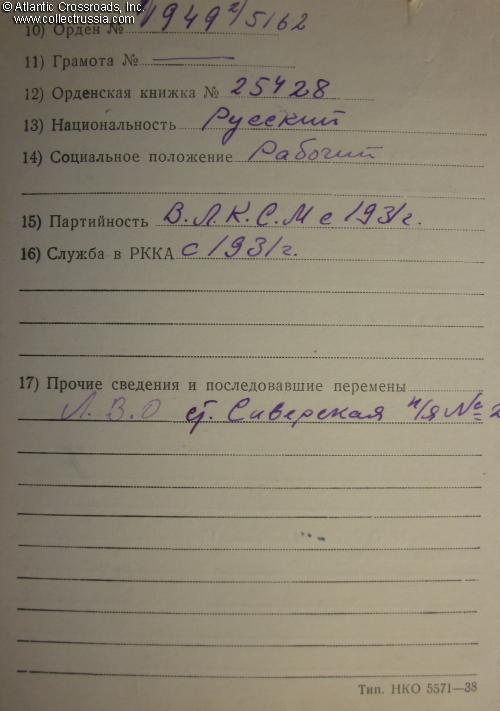 © Atlantic Crossroads, Inc.
www.collectrussia.com
10) Орден № 1949²/5162
11) Грамота № —
12) Орденская книжка № 25428
13) Национальность Русский
14) Социальное положение Рабочий
15) Партийность В.Л.К.С.М с 1931г.
16) Служба в РККА с 1931г.
17) Прочие сведения и последовавшие перемены
Л.В.О ст. Сиверская п/я № 2
Тип. НКО 5571—38